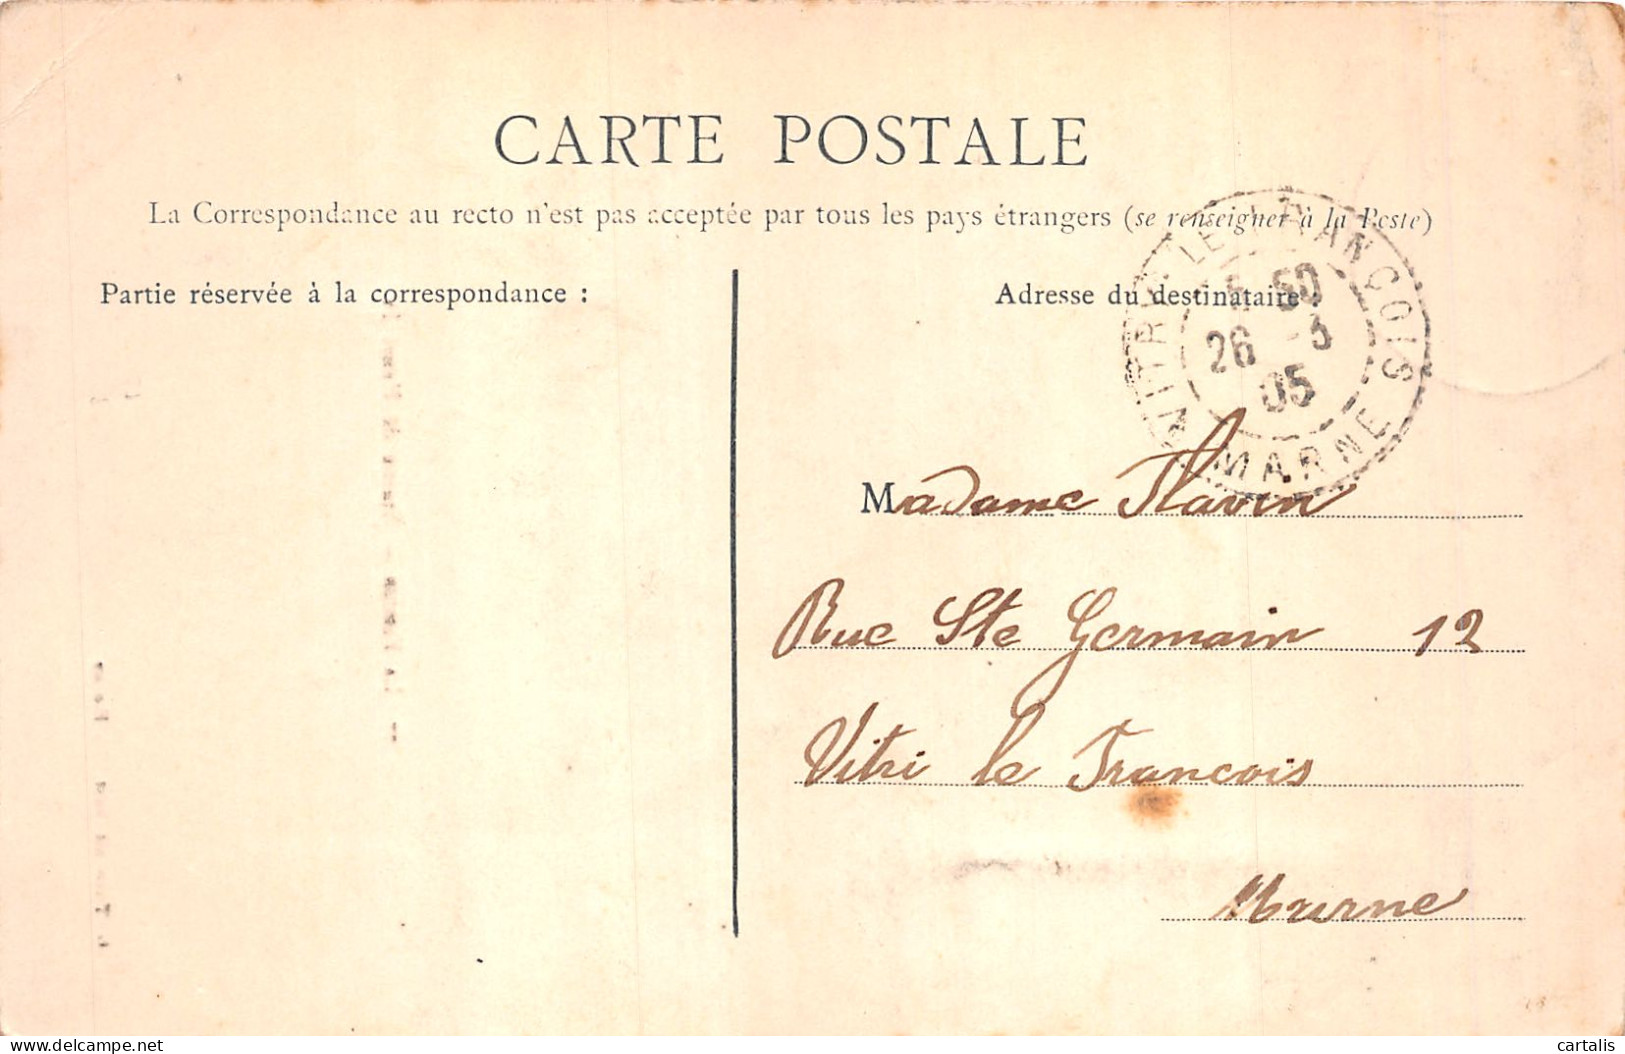 CARTE POSTALE
La Correspondance au recto n'est pas acceptée par tous les pays étrangers (se renseigner à la Poste)
Partie réservée à la correspondance :
Adresse du destinataire :
VITRY LE FRANÇOIS
50
26 -3
05
MARNE
Madame Flavin
Rue Ste Germain 12
Vitri le Francois
Marne
delcampe.net
cartalis